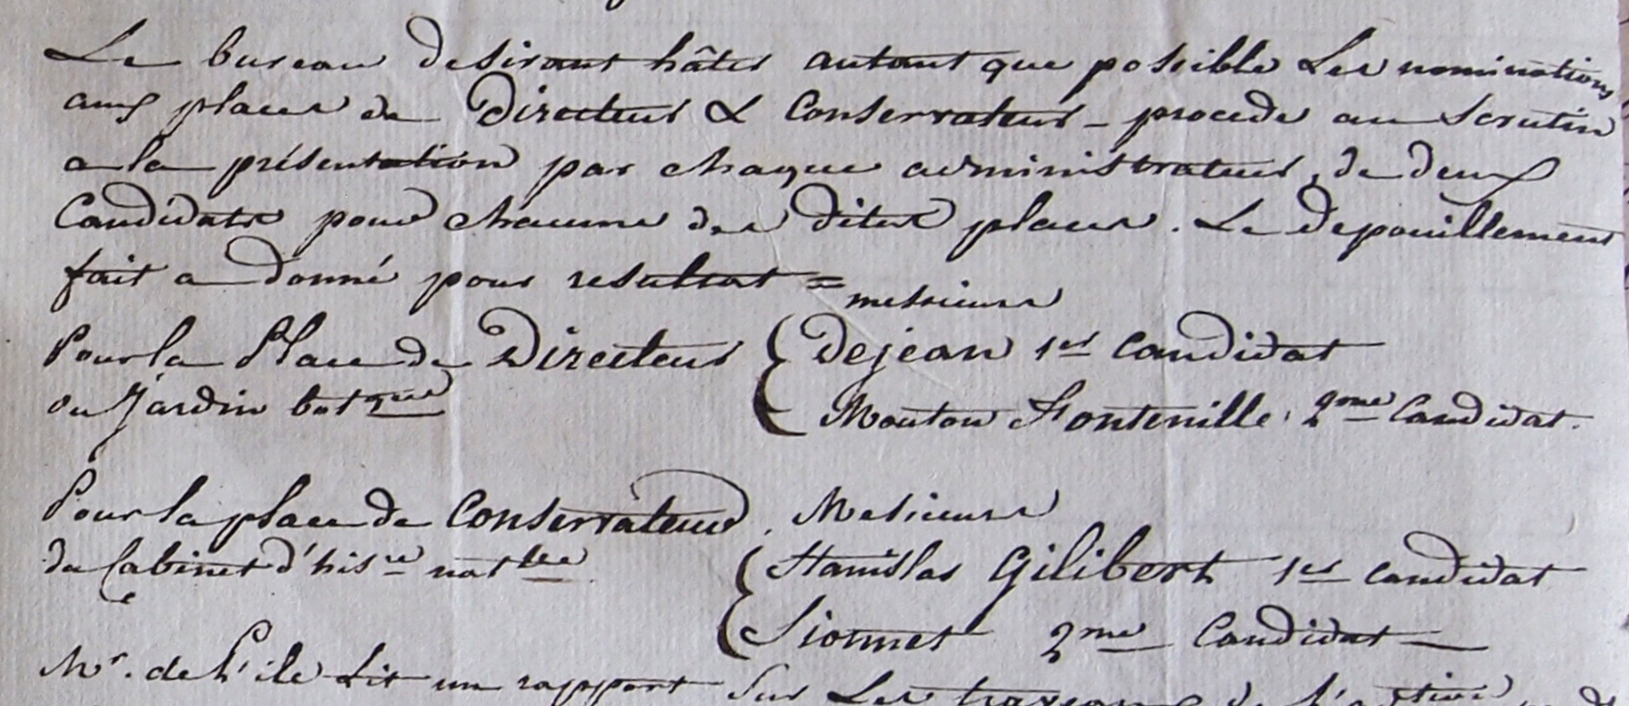 Le bureau desirant hâter autant que possible Les nominations
aux places de Directeur & Conservateur - procede au Scrutin
a la présentation par chaque administrateur, de deux
Candidats pour chacune des dites places. Le depouillement
fait a donné pour resultat =
messieurs
Pour la Place de Directeur { Dejean 1er candidat
du Jardin botque Mouton Fontenille, 2me Candidat.
Pour la place de Conservateur. Messieurs
du Cabinet d'hisre natlle { Stanislas Gilibert 1er candidat
Sionnet 2me Candidat
Mr. de L'ile Lit un rapport Sur Les travaux de l'